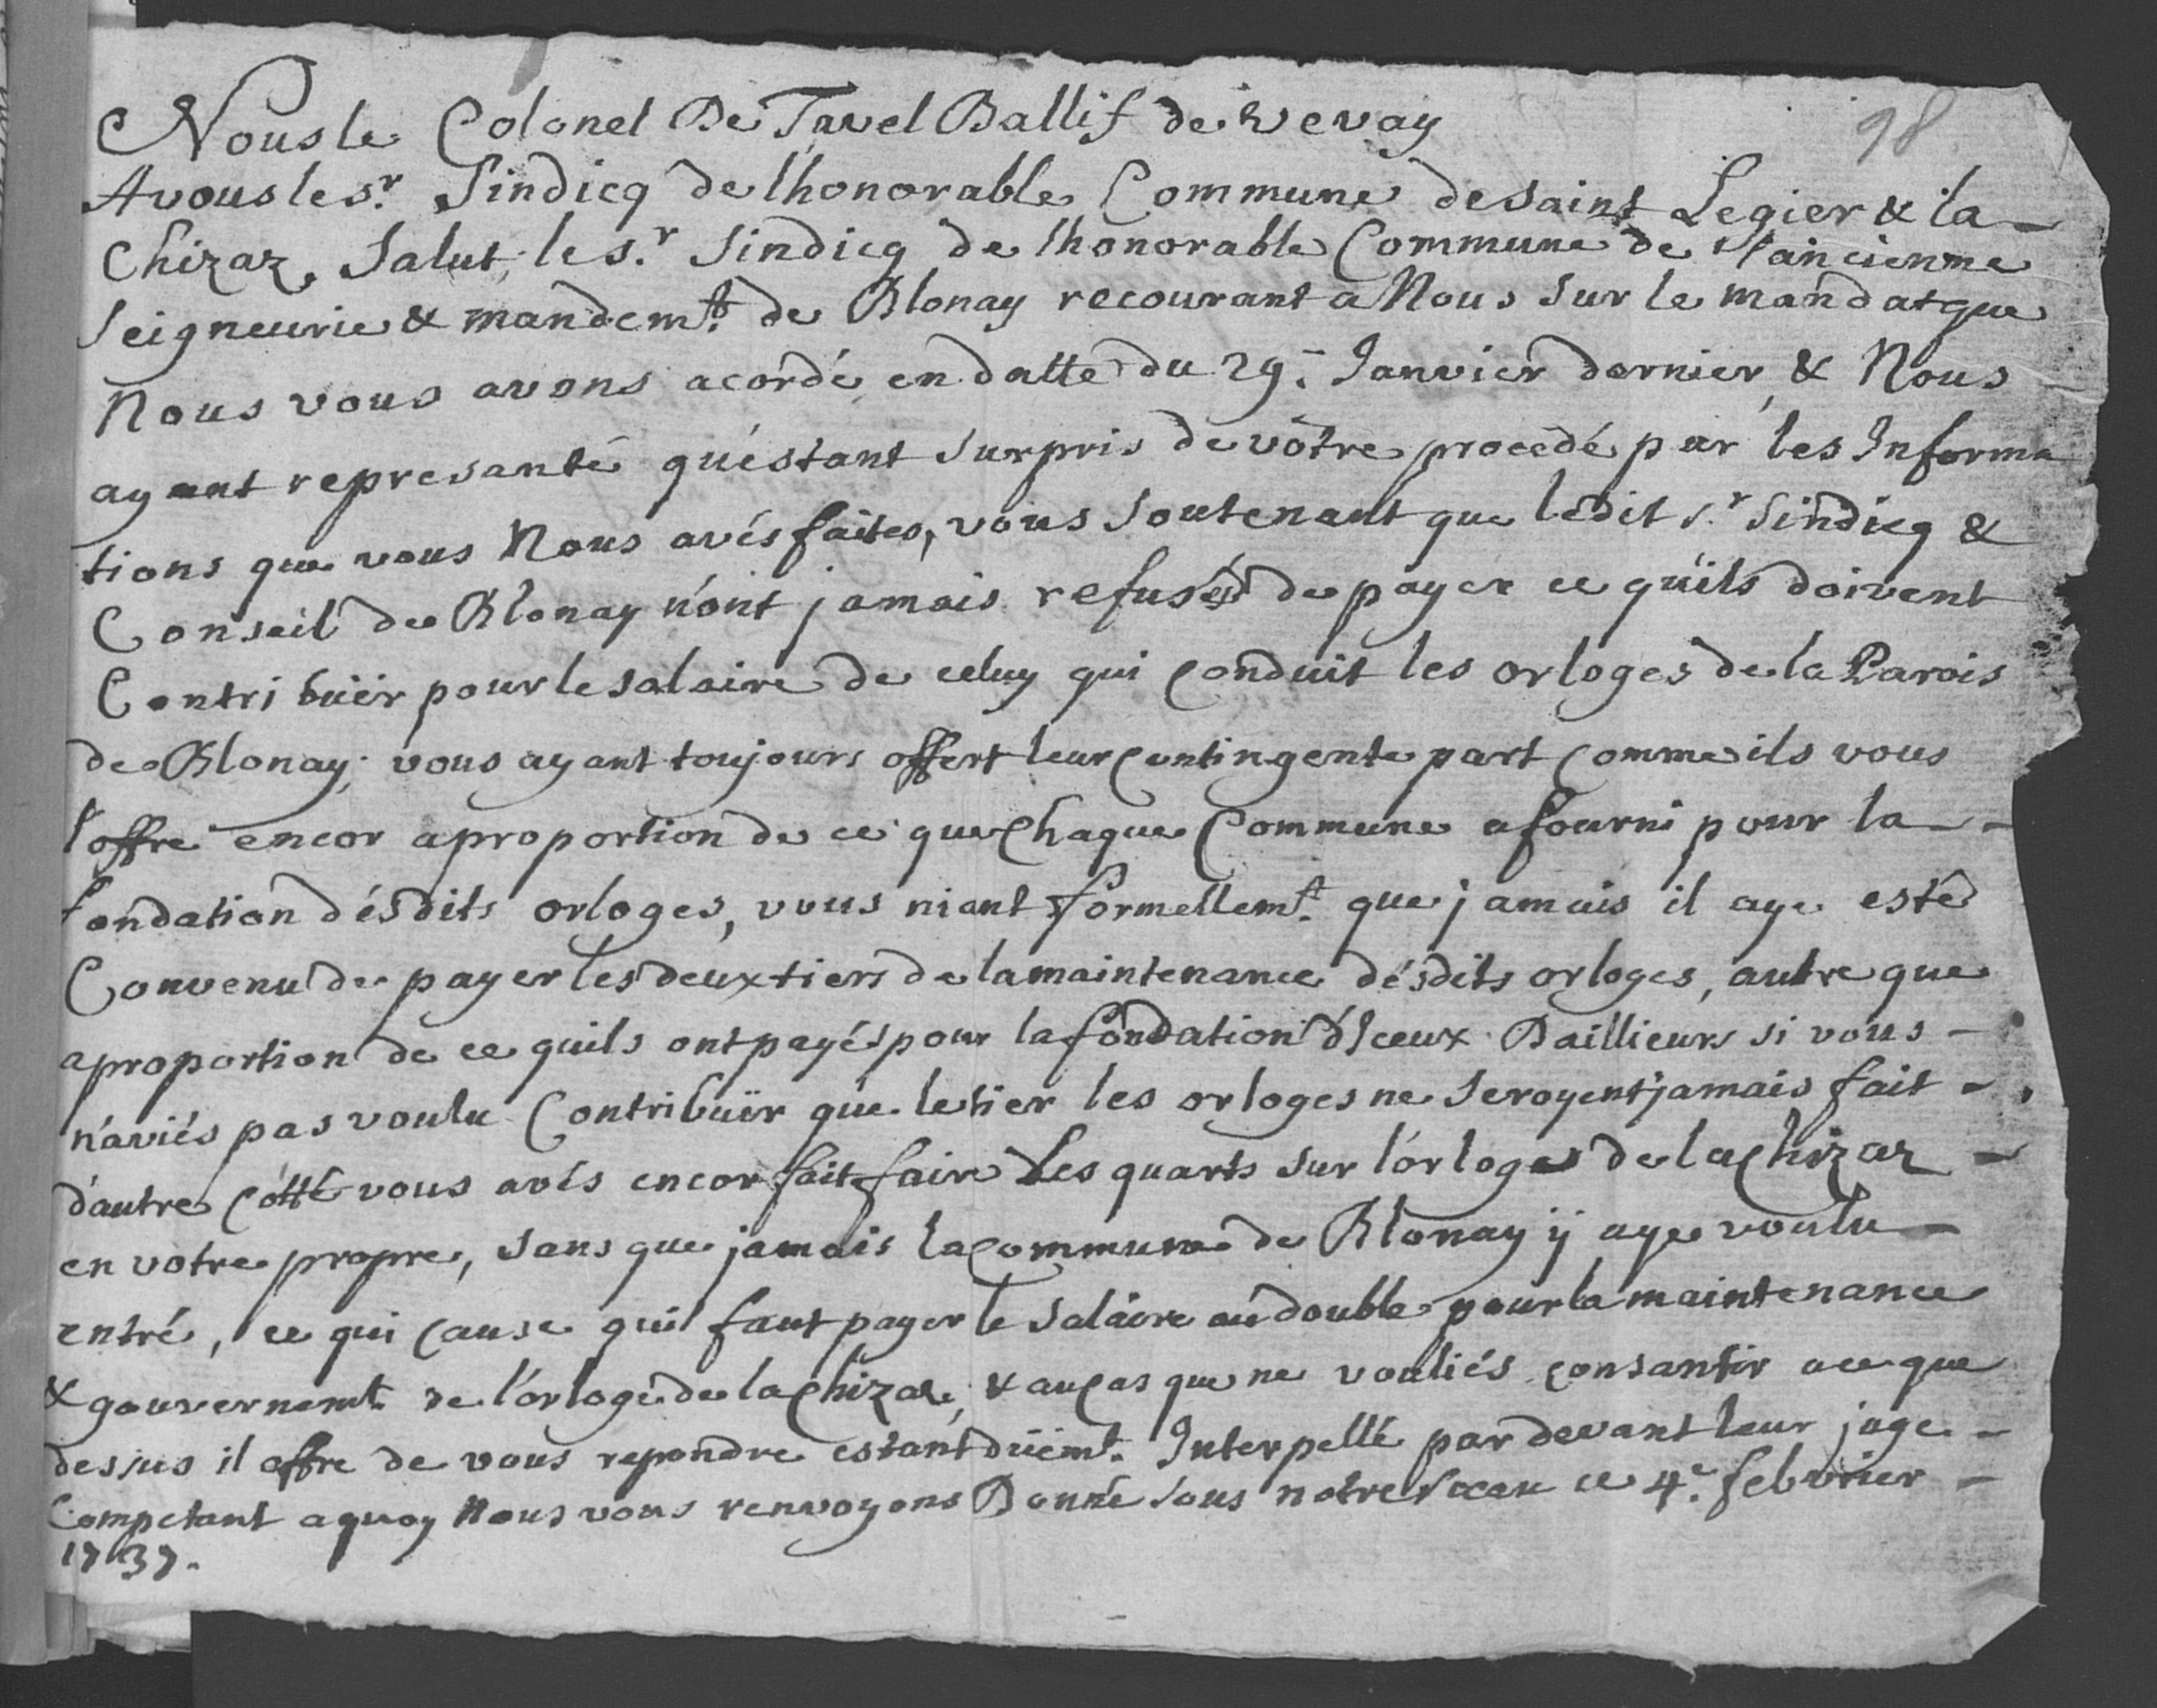 98
Nous le Colonel De Tavel Ballif de Vevay
A vous le sr. Sindicq de lhonorable Commune de Saint Legier & la
Chizaz, Salut, le s.r Sindicq de lhonorable Commune de l'ancienne
Seigneurie & mandemt. de Blonay recourant a Nous sur le mandat que
Nous vous avons acordé en datte du 29.e Janvier dernier, & Nous
ayant represanté qu'éstant surpris de vôtre procedé par les Informa
tions que vous Nous avés faites, vous soutenant que ledit s.r Sindicq &
Conseil de Blonay n'ont jamais refusés de payer ce qu'ils doivent
Contribuër pour le salaire de celuy qui conduit les orloges de la Parois
de Blonay; vous ayant toujours offert leur contingente part comme ils vous
l'offre encor a proportion de ce que chaque Commune a fourni pour la
fondation désdits orloges, vous niant formellemt. que jamais il aye esté
Convenu de payer les deux tiers de la maintenance désdits orloges, autre que
a proportion de ce quils ont payés pour la fondation d'Iceux Dailleurs si vous
n'aviés pas voulu Contribuër que le tier les orloges ne seroyent jamais fait
d'autre côtté vous avés encor fait faire Les quarts sur l'orloge de la Chizaz
en votre propre, sans que jamais la Commune de Blonay ÿ aye voulu
entré, ce qui cause quil faut payer le salaire au double pour la maintenance
& gouvernemt. de l'orloge de la Chizaz, & au cas que ne vouliés consantir a ce que
dessus il offre de vous repondre estant düemt. Interpellé par devant leur juge
Competant a quoy Nous vous renvoyons Donné sous notre sceau ce 4.e febvrier
1737.